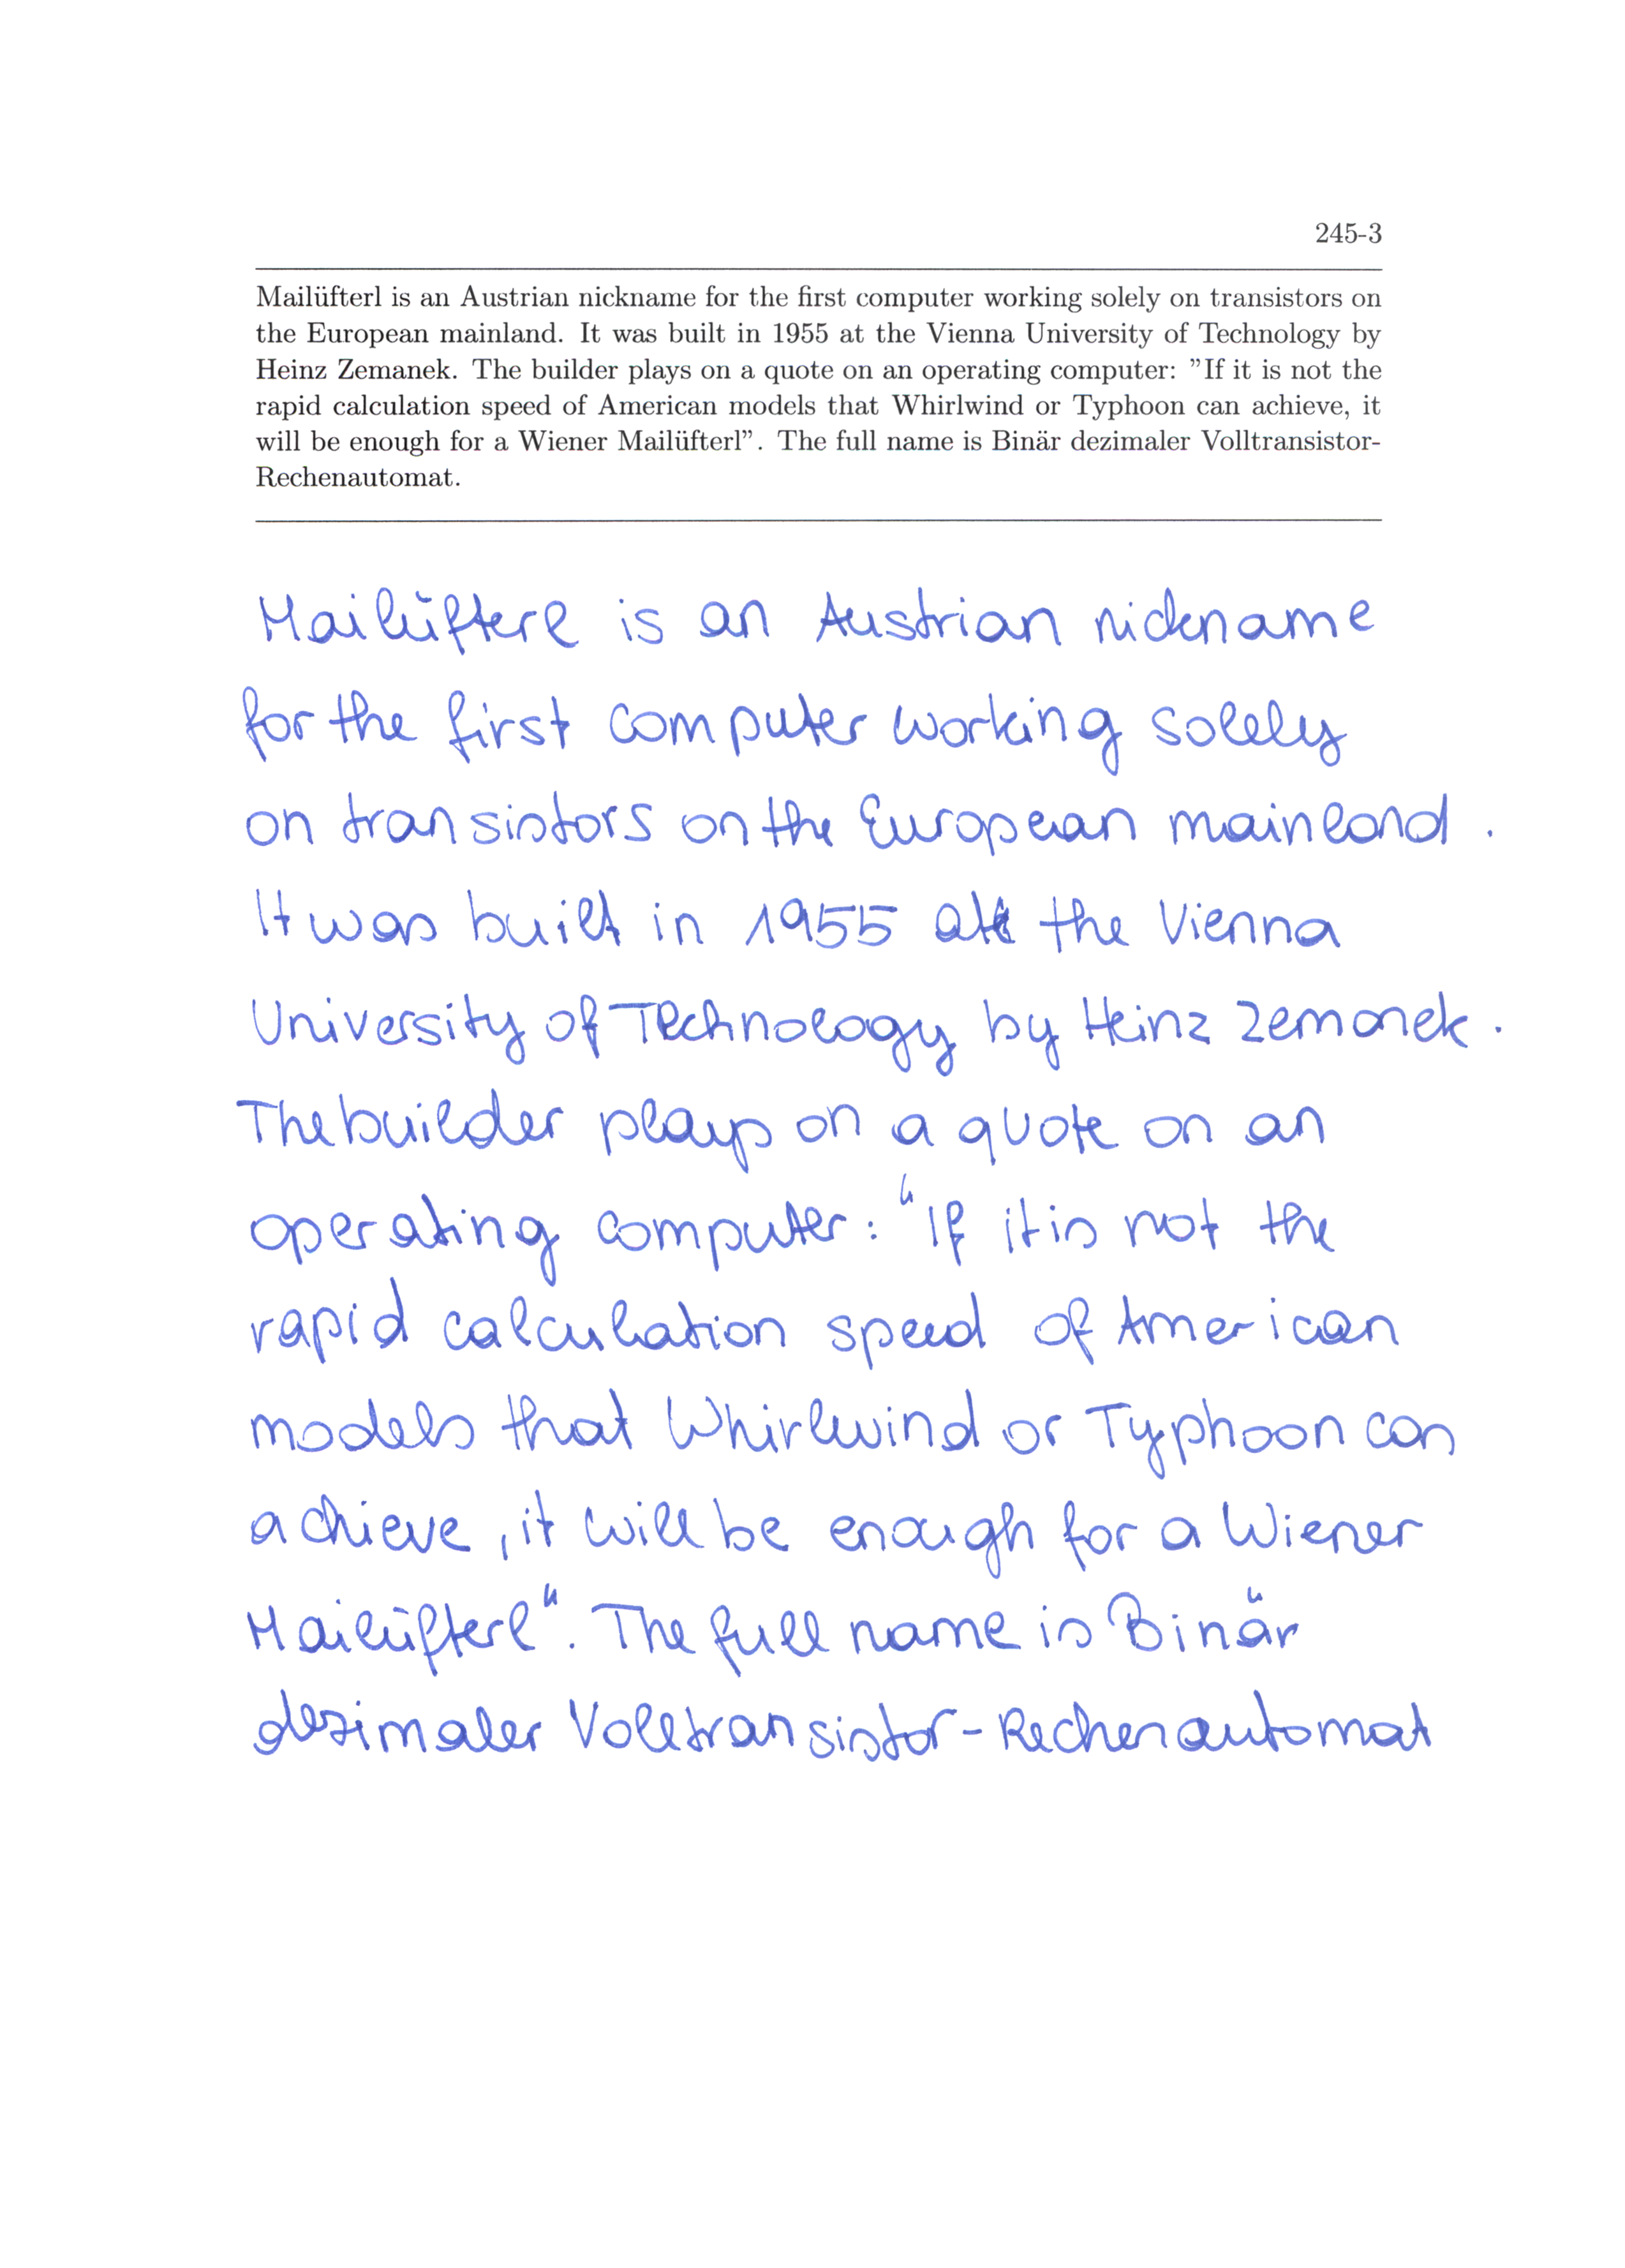 245-3
Mailüfterl is an Austrian nickname for the first computer working solely on transistors on
the European mainland. It was built in 1955 at the Vienna University of Technology by
Heinz Zemanek. The builder plays on a quote on an operating computer: ”If it is not the
rapid calculation speed of American models that Whirlwind or Typhoon can achieve, it
will be enough for a Wiener Mailüfterl”. The full name is Binär dezimaler Volltransistor-
Rechenautomat.
Mailüfterl is an Austrian nickname
for the first computer working solely
on transistors on the European mainland.
It was built in 1955 at the Vienna
University of Technology by Heinz Zemanek.
The builder plays on a quote on an
operating computer: “If it is not the
rapid calculation speed of American
models that Whirlwind or Typhoon can
achieve, it will be enough for a Wiener
Mailüfterl“. The full name is Binär
dezimaler Volltransistor-Rechenautomat